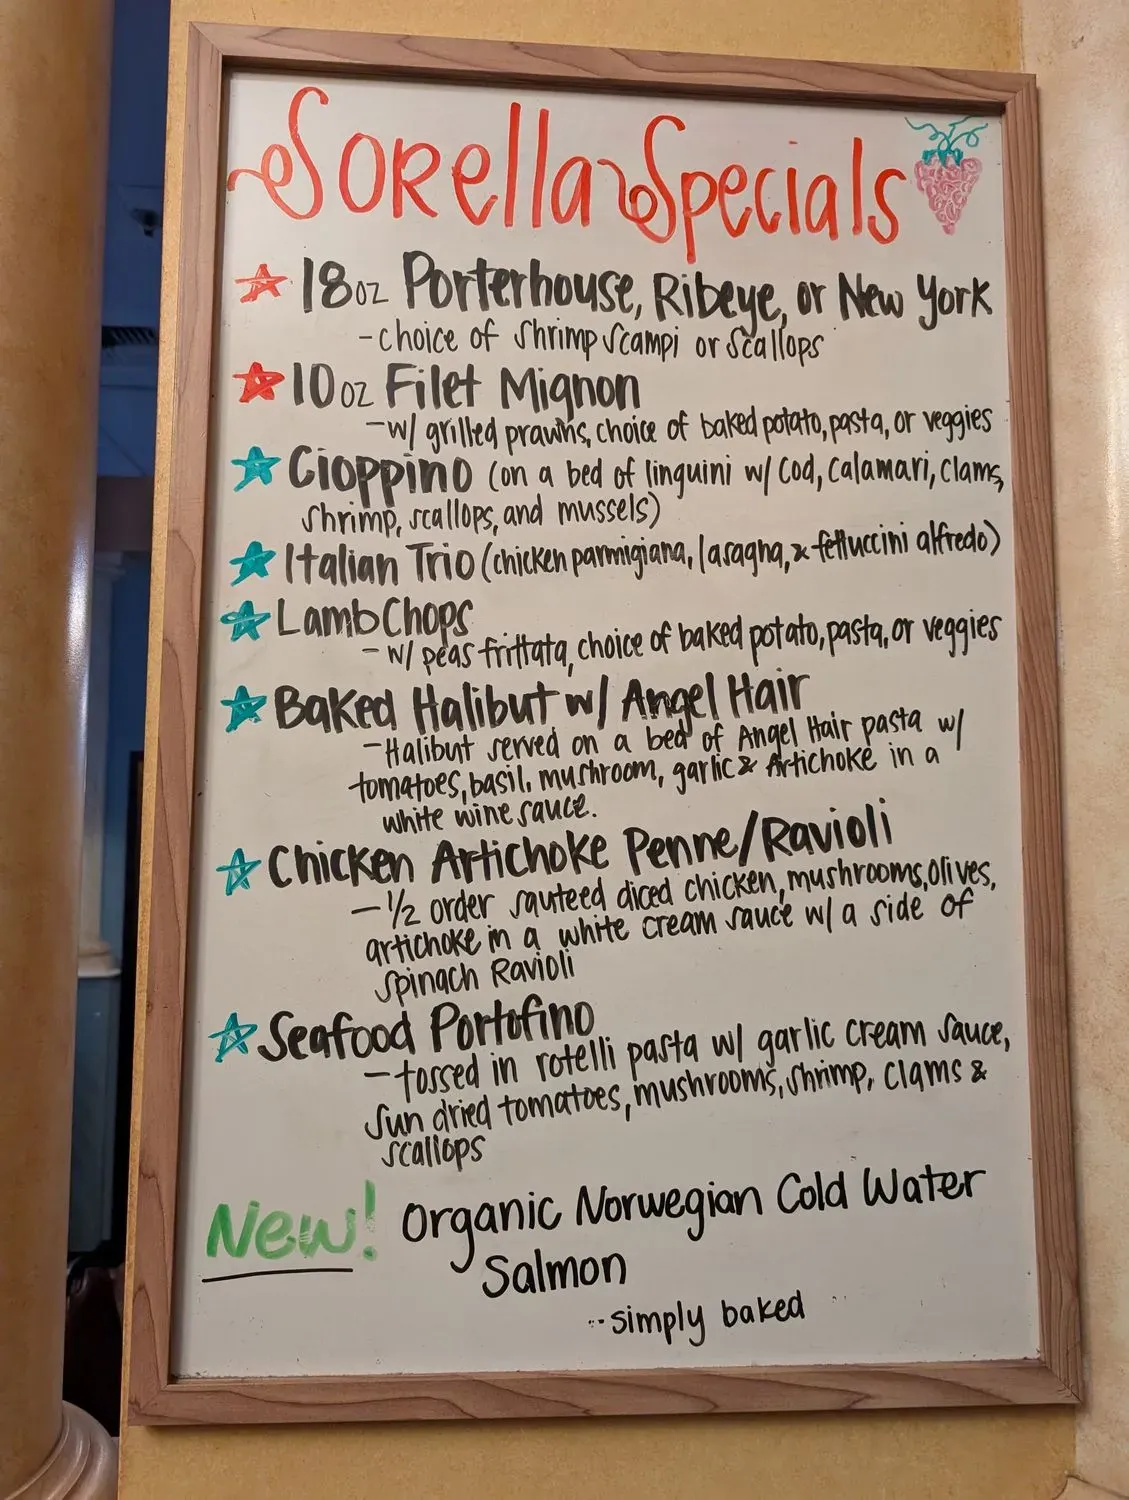 Sorella Specials
18oz Porterhouse, Ribeye, or New York
-choice of shrimp scampi or scallops
10oz Filet Mignon
-w/ grilled prawns, choice of baked potato, pasta, or veggies
Cioppino (on a bed of linguini w/ cod, calamari, clams,
shrimp, scallops, and mussels)
Italian Trio (chicken parmigiana, lasagna, & fettuccini alfredo)
Lamb Chops
- w/ peas frittata, choice of baked potato, pasta, or veggies
Baked Halibut w/ Angel Hair
-Halibut served on a bed of Angel Hair pasta w/
tomatoes, basil, mushroom, garlic & Artichoke in a
white wine sauce.
Chicken Artichoke Penne/Ravioli
-1/2 order sauteed diced chicken, mushrooms, olives,
artichoke in a white cream sauce w/ a side of
spinach Ravioli
Seafood Portofino
-tossed in rotelli pasta w/ garlic cream sauce,
sun dried tomatoes, mushrooms, shrimp, clams &
scallops
New! Organic Norwegian Cold Water
Salmon
-simply baked